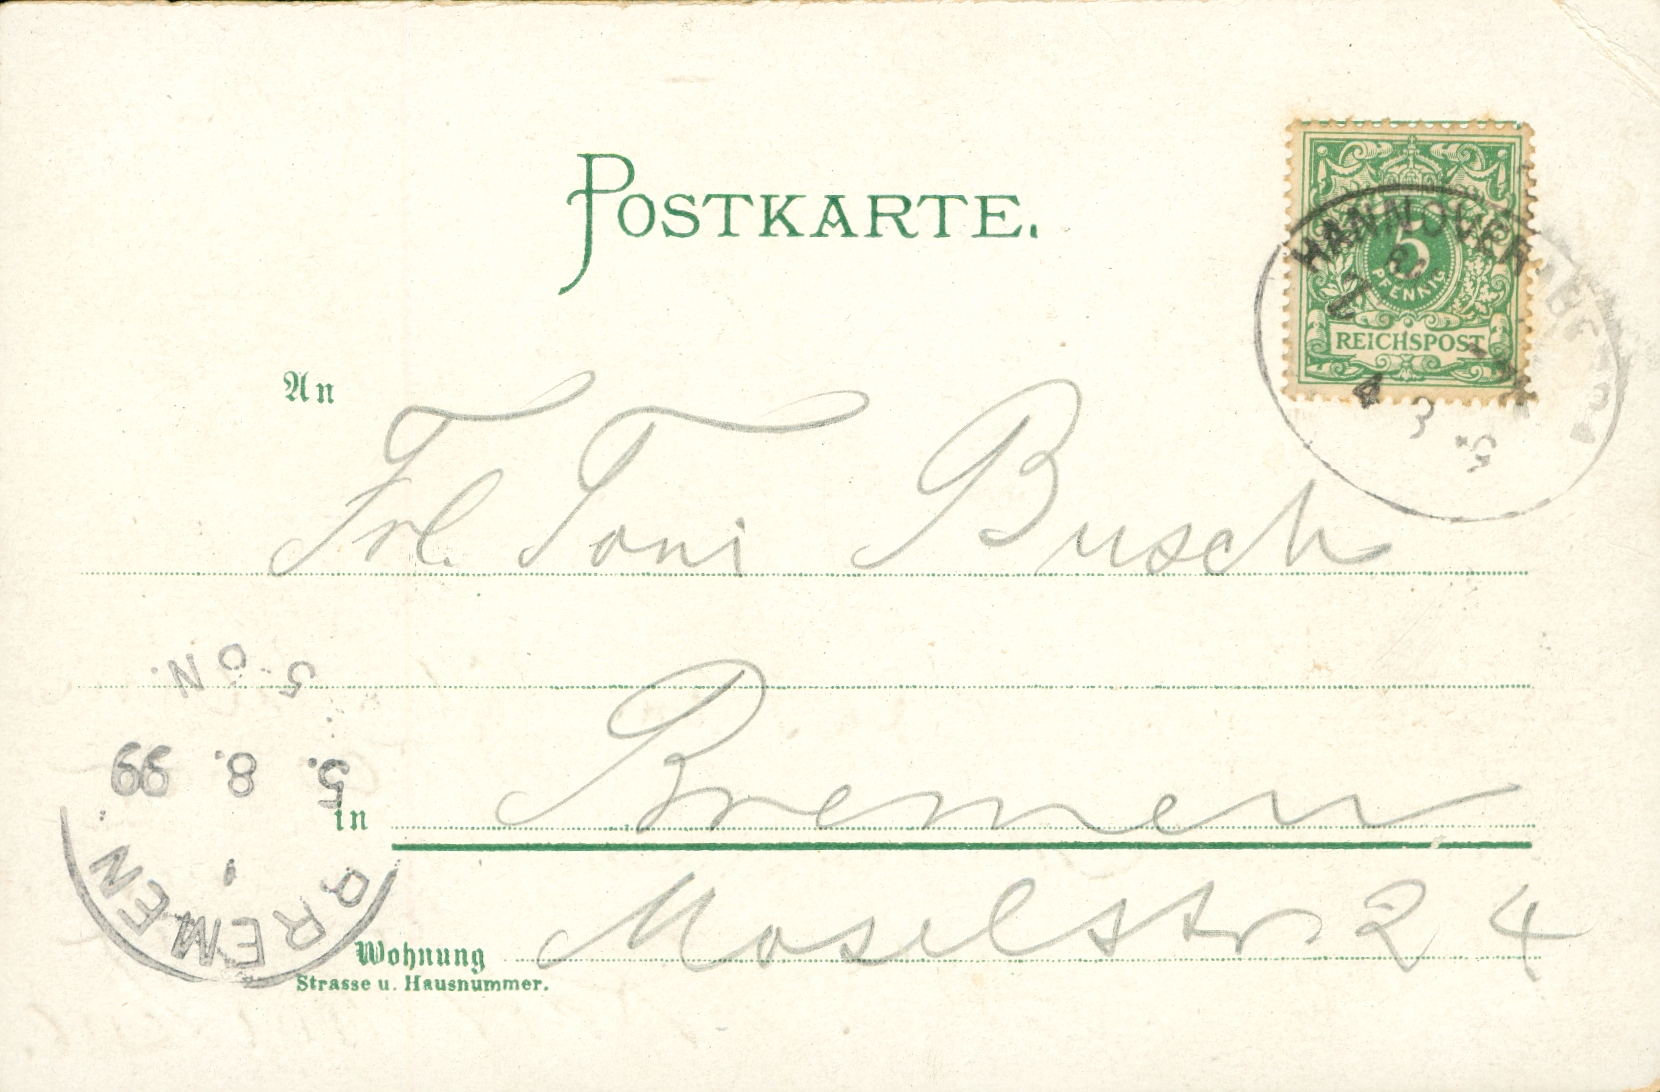 POSTKARTE.
HANNOVER
5
PFENNIG
REICHSPOST
An
Frl. Toni Busch
5-6 N.
5. 8. 99
BREMEN
in Bremen
Wohnung Moselstr. 24
Strasse u. Hausnummer.